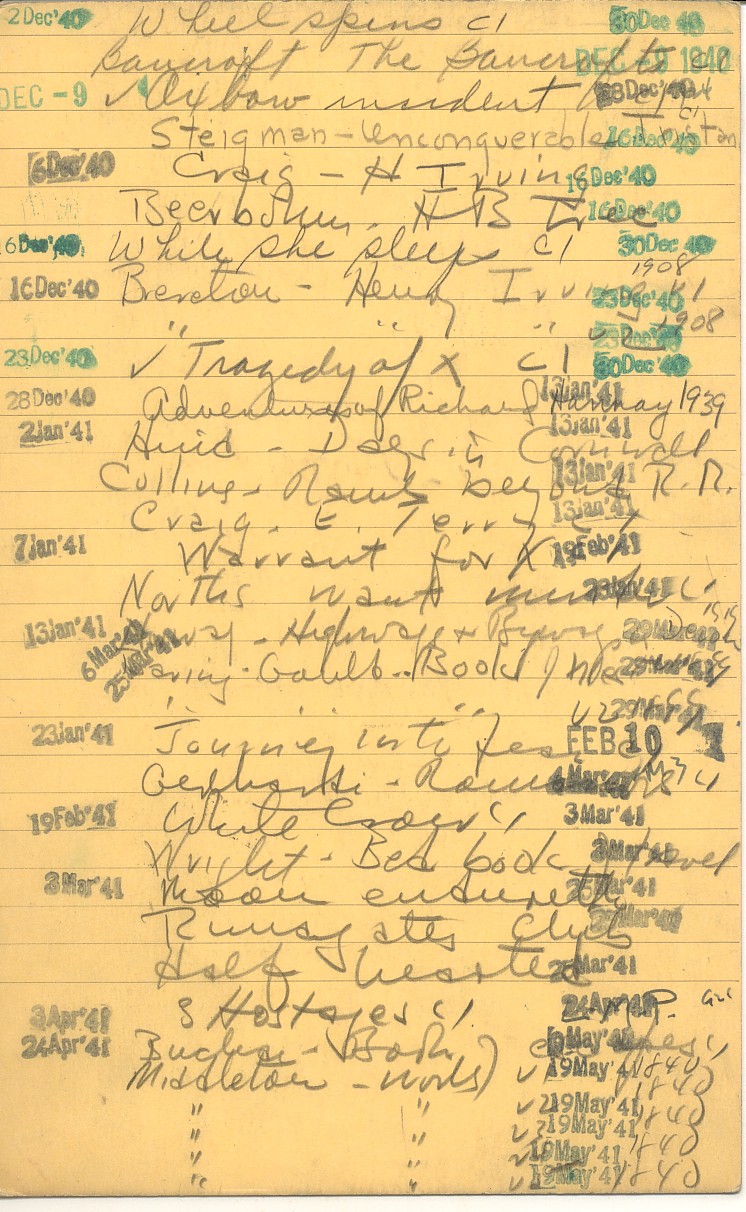 2 Dec '40 Wheel spins c1 30 Dec 40
Bancroft The Bancrofts c1 DEC -9 1940
DEC -9 ✓ Oxbow insident 28 Dec '40
Steigman - Unconquerable Tristan c1 16 Dec '40
6 Dec '40 Craig - H Irving 16 Dec '40
Beerbohm H B Tree 16 Dec '40
6 Dec '40 While she sleeps c1 30 Dec '40
16 Dec '40 Brereton - Henry Irving 1908 v1 23 Dec '40
" " " v2 1908 23 Dec '40
23 Dec '40 ✓ Tragedy of X c1 30 Dec '40
28 Dec '40 Adventures of Richard Hannay 1939 13 Jan '41
2 Jan '41 Hind - Days in Cornwall 13 Jan '41
Collins - Rambles beyond R.R. 13 Jan '41
Craig - E. Terry 13 Jan '41
7 Jan '41 Warrant for X 19 Feb '41
Norths want murder c1 23 Jan '41
13 Jan '41 Highways & Byways 29 Mar
6 Mar '41 25 Mar '41 Baring-Gould - Book 29 Mar '41
" " " v2 29 Mar '41
23 Jan '41 Journey into fear FEB 10
Gerhardi - c1
19 Feb '41 White c1 3 Mar '41
Wright - Bed book travel 3 Mar '41
3 Mar '41 Moon endureth 25 Mar '41
Runagates Club
Half hearted 25 Mar '41
3 Apr '41 8 Hostages c1 24 Apr '41
24 Apr '41 Buchan - Book May '41
Middleton - Works v1 19 May '41 1840
" " v2 19 May '41 1840
" " v3 19 May '41 1840
" " 19 May '41 1840
" " 19 May '41 1840